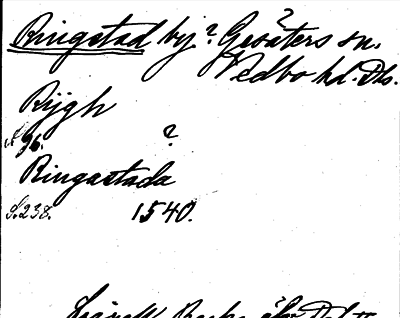 ?
Ringstad by ? Gesäters sn.
Vedbo hd. Dls.
Rijgh
s. 96. ?
Ringastada
S. 238. 1540.